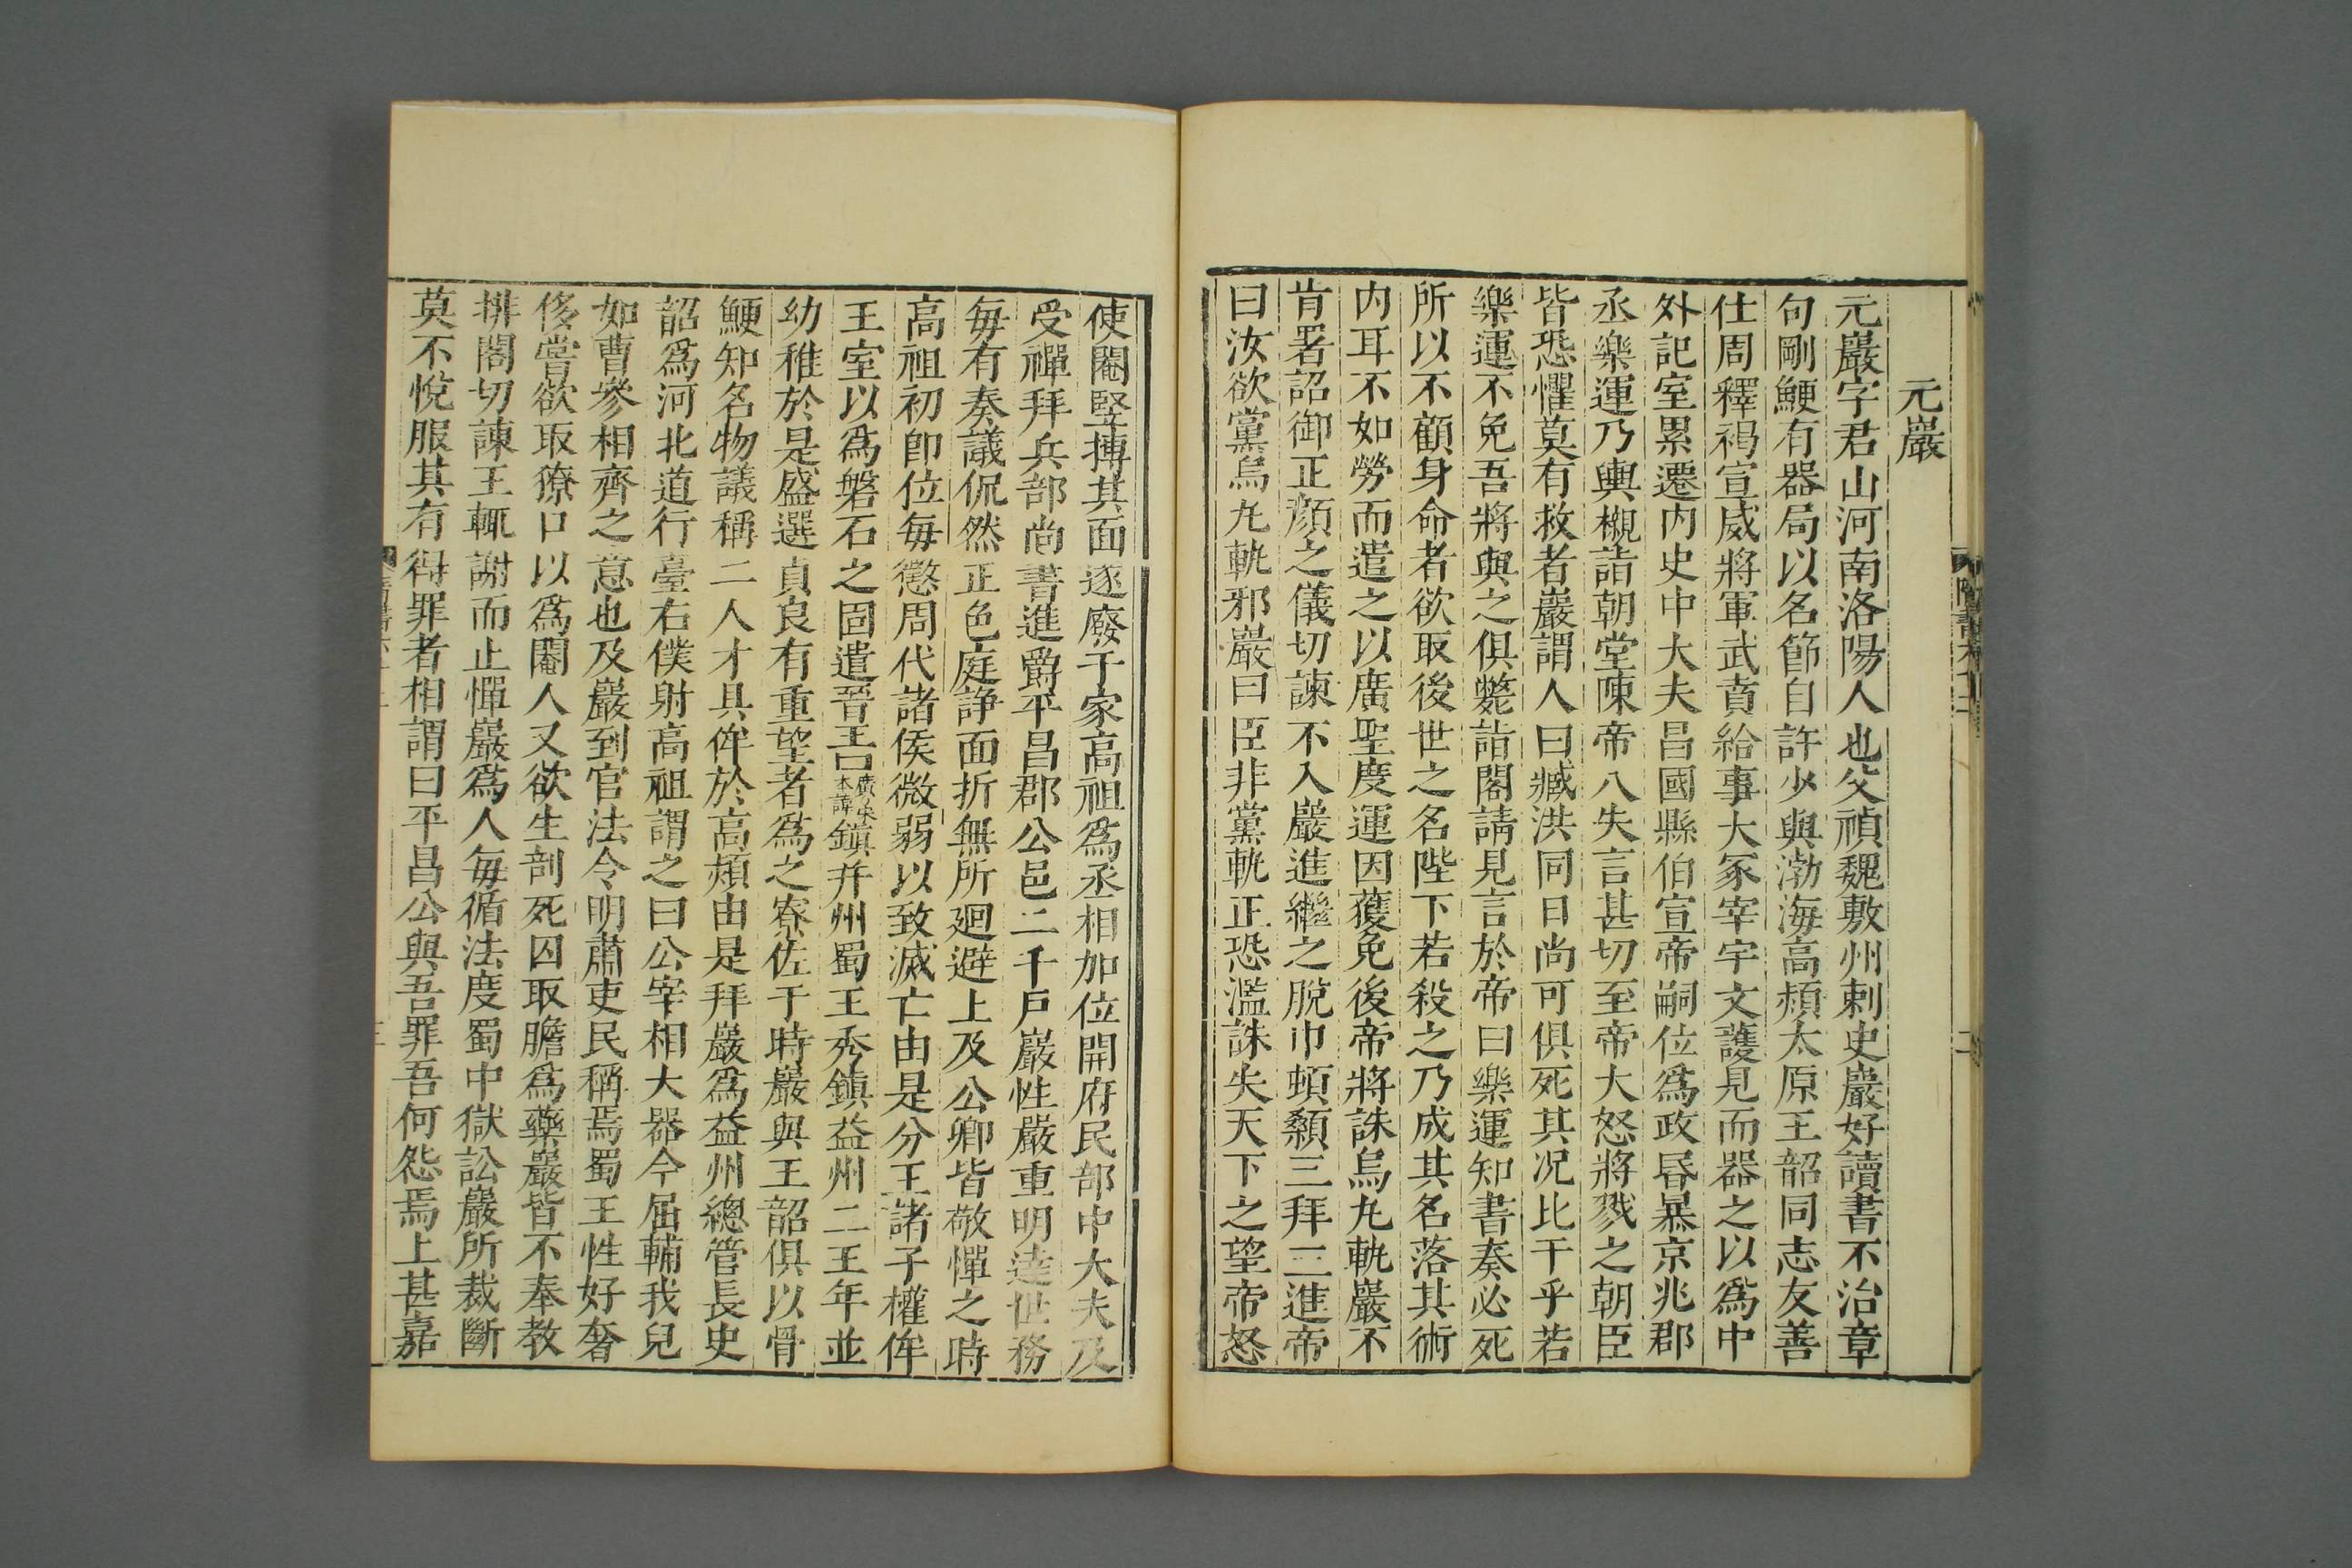 元巖
元巖字君山河南洛陽人也父禎魏敷州刺史巖好讀書不治章
句剛鯁有器局以名節自許少與渤海高熲太原王韶同志友善
仕周釋褐宣威將軍武賁給事大冢宰宇文護見而器之以爲中
外記室累遷内史中大夫昌國縣伯宣帝嗣位爲政昬暴京兆郡
丞樂運乃輿櫬詣朝堂陳帝八失言甚切至帝大怒將戮之朝臣
皆恐懼莫有救者巖謂人曰臧洪同日尚可俱死其况比干乎若
樂運不免吾將與之俱斃詣閣請見言於帝曰樂運知書奏必死
所以不顧身命者欲取後世之名陛下若殺之乃成其名落其術
内耳不如勞而遣之以廣聖度運因獲免後帝將誅烏丸軌巖不
肯署詔御正顔之儀切諫不入巖進繼之脫巾頓顙三拜三進帝
曰汝欲黨烏丸軌邪巖曰臣非黨軌正恐濫誅失天下之望帝怒
使閹竪搏其面遂廢于家高祖爲丞相加位開府民部中大夫及
受禪拜兵部尚書進爵平昌郡公邑二千戸巖性嚴重明達世務
每有奏議侃然正色庭諍面折無所廻避上及公卿皆敬憚之時
高祖初卽位每懲周代諸侯微弱以致滅亡由是分王諸子權侔
王室以爲磐石之固遣晉王廣宋本諱鎮幷州蜀王秀鎮益州二王年並
幼稚於是盛選貞良有重望者爲之寮佐于時巖與王韶俱以骨
鯁知名物議稱二人才具侔於高熲由是拜巖爲益州總管長史
韶爲河北道行臺右僕射高祖謂之曰公宰相大器今屈輔我兒
如曹參相齊之意也及巖到官法令明肅吏民稱焉蜀王性好奢
侈嘗欲取獠口以爲閹人又欲生剖死囚取膽爲藥巖皆不奉教
排閣切諫王輒謝而止憚巖爲人每循法度蜀中獄訟巖所裁斷
莫不悅服其有得罪者相謂曰平昌公與吾罪吾何怨焉上甚嘉